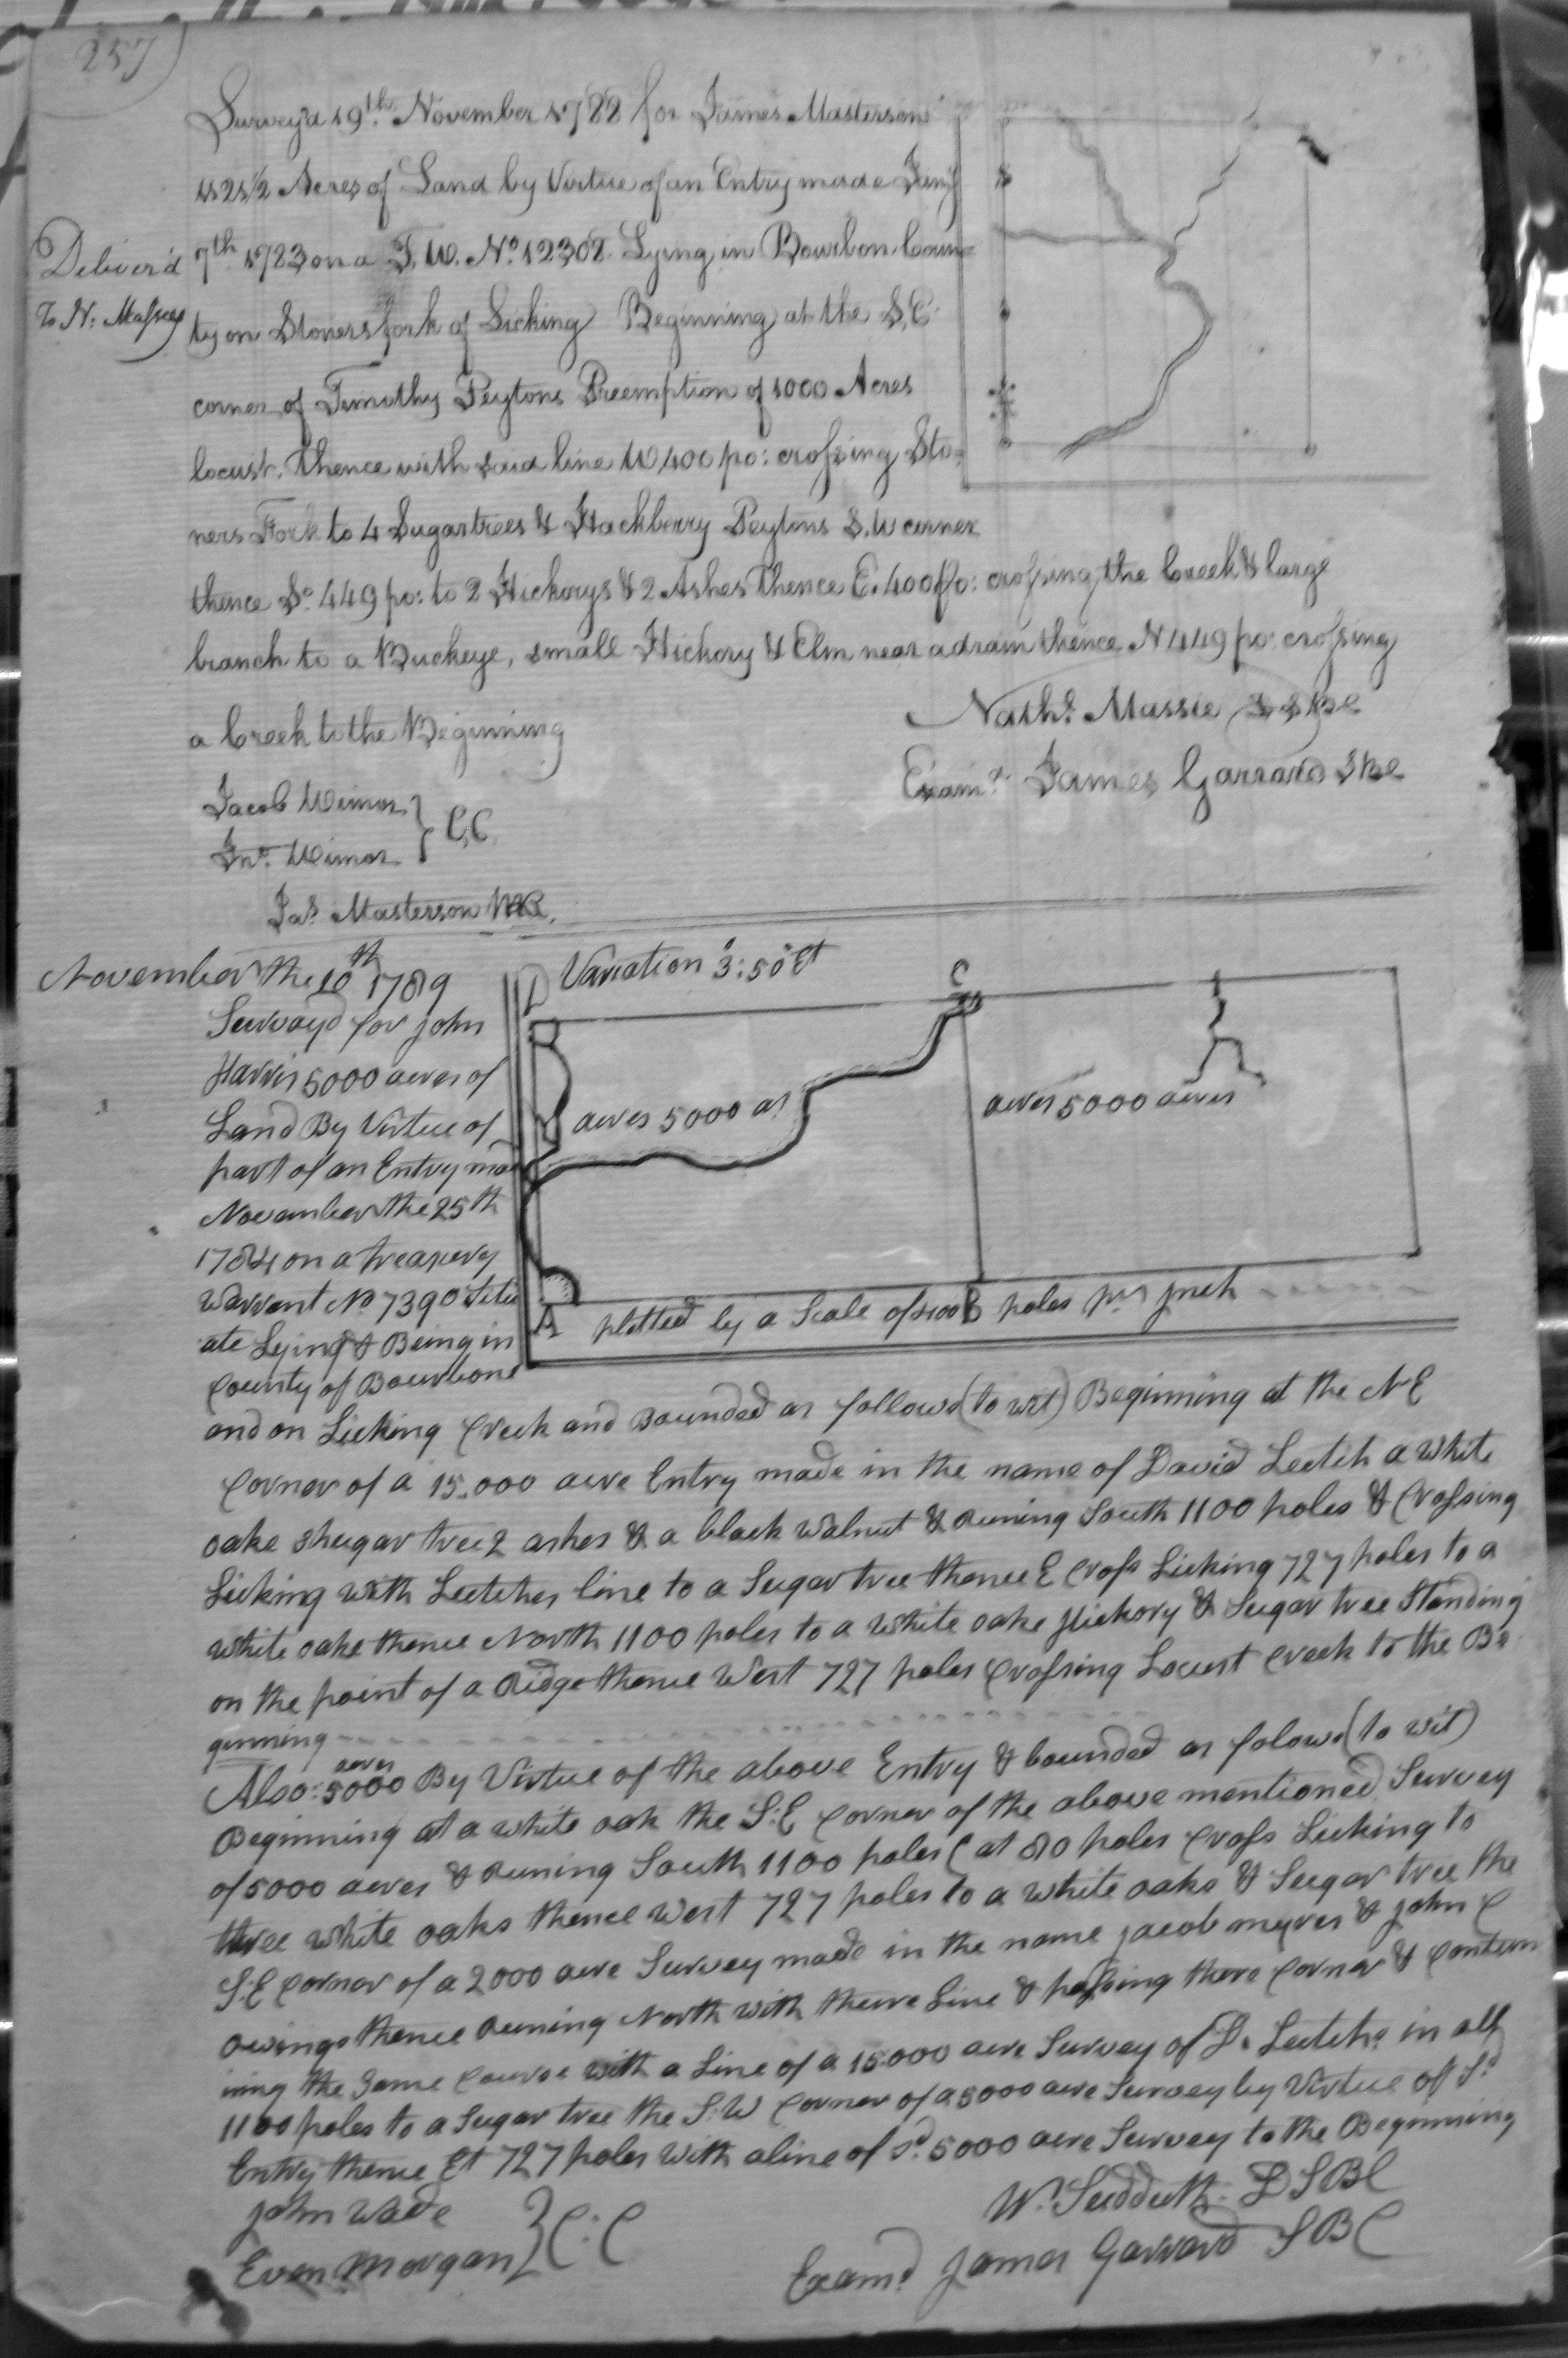 257
Survey'd 19th November 1788 for James Masterson
1121 1/2 Acres of Land by Virtue of an Entry made Jany
7th 1783 on a T.W. No. 12308 Lying in Bourbon Coun=
ty on Stoners fork of Licking Beginning at the S,E
corner of Timothy Peytons Preemption of 1000 Acres
locust. Thence with said line W 400 po: crossing Sto=
ners Fork to 4 Sugartrees & Hackberry Peytons S.W corner
thence So. 449 po: to 2 Hickorys & 2 Ashes thence E. 400 po: crossing the Creek & large
branch to a Buckeye, small Hickory & Elm near a drain thence N 449 po: crossing
a Creek to the Beginning
Deliver'd
To N: Massey
Nathl. Massie
Examd. James Garrard SBC
Jacob Wimor
Jno. Wimor
} C,C,
Jas. Masterson
November the 10th 1789
Survayd for John
Harris 5000 acres of
Land By Virtue of
part of an Entry mad
November the 25th
1784 on a treasury
Warrant No 7390 Situ
ate Lying & Being in
County of Bourbone
D Variation 3°:50 Et
C
acres 5000 as
acres 5000 acres
A
B
plotted by a Scale of 400 poles pr Inch
and on Licking Creek and Bounded as follows (to wit) Beginning at the N E
Corner of a 15.000 acre Entry made in the name of David Leetch a white
oake shugar tree 2 ashes & a black walnut & Runing South 1100 poles & Crossing
Licking with Leetches line to a Sugar tree thence E Cross Licking 727 poles to a
white oake thence North 1100 poles to a white oake Hickory & Sugar tree Standing
on the point of a Ridge thence West 727 poles Crossing Locust Creek to the Be
ginning
Also: 5000 acres By Virtue of the above Entry & bounded as folows (to wit)
Beginning at a white oak the S:E Corner of the above mentioned Survey
of 5000 acres & Runing South 1100 poles (at 80 poles Cross Licking to
three white oaks thence West 727 poles to a white oaks & Sugar tree the
S:E Corner of a 2000 acre Survey made in the name jacob myres & john C
owings thence Runing North with there Line & passing there Corner & Contenu
ining the Same Course with a Line of a 15.000 acre Survey of D. Leetchs in all
1100 poles to a Sugar tree the S:W Corner of a 5000 acre Survey by Virtue of Sd
Entry thence Et 727 poles with a line of Sd. 5000 acre Survey to the Beginning
John Wade
Even Morgan
} C:C
W. Sudduth. D S B C
Examd James Garrard S B C